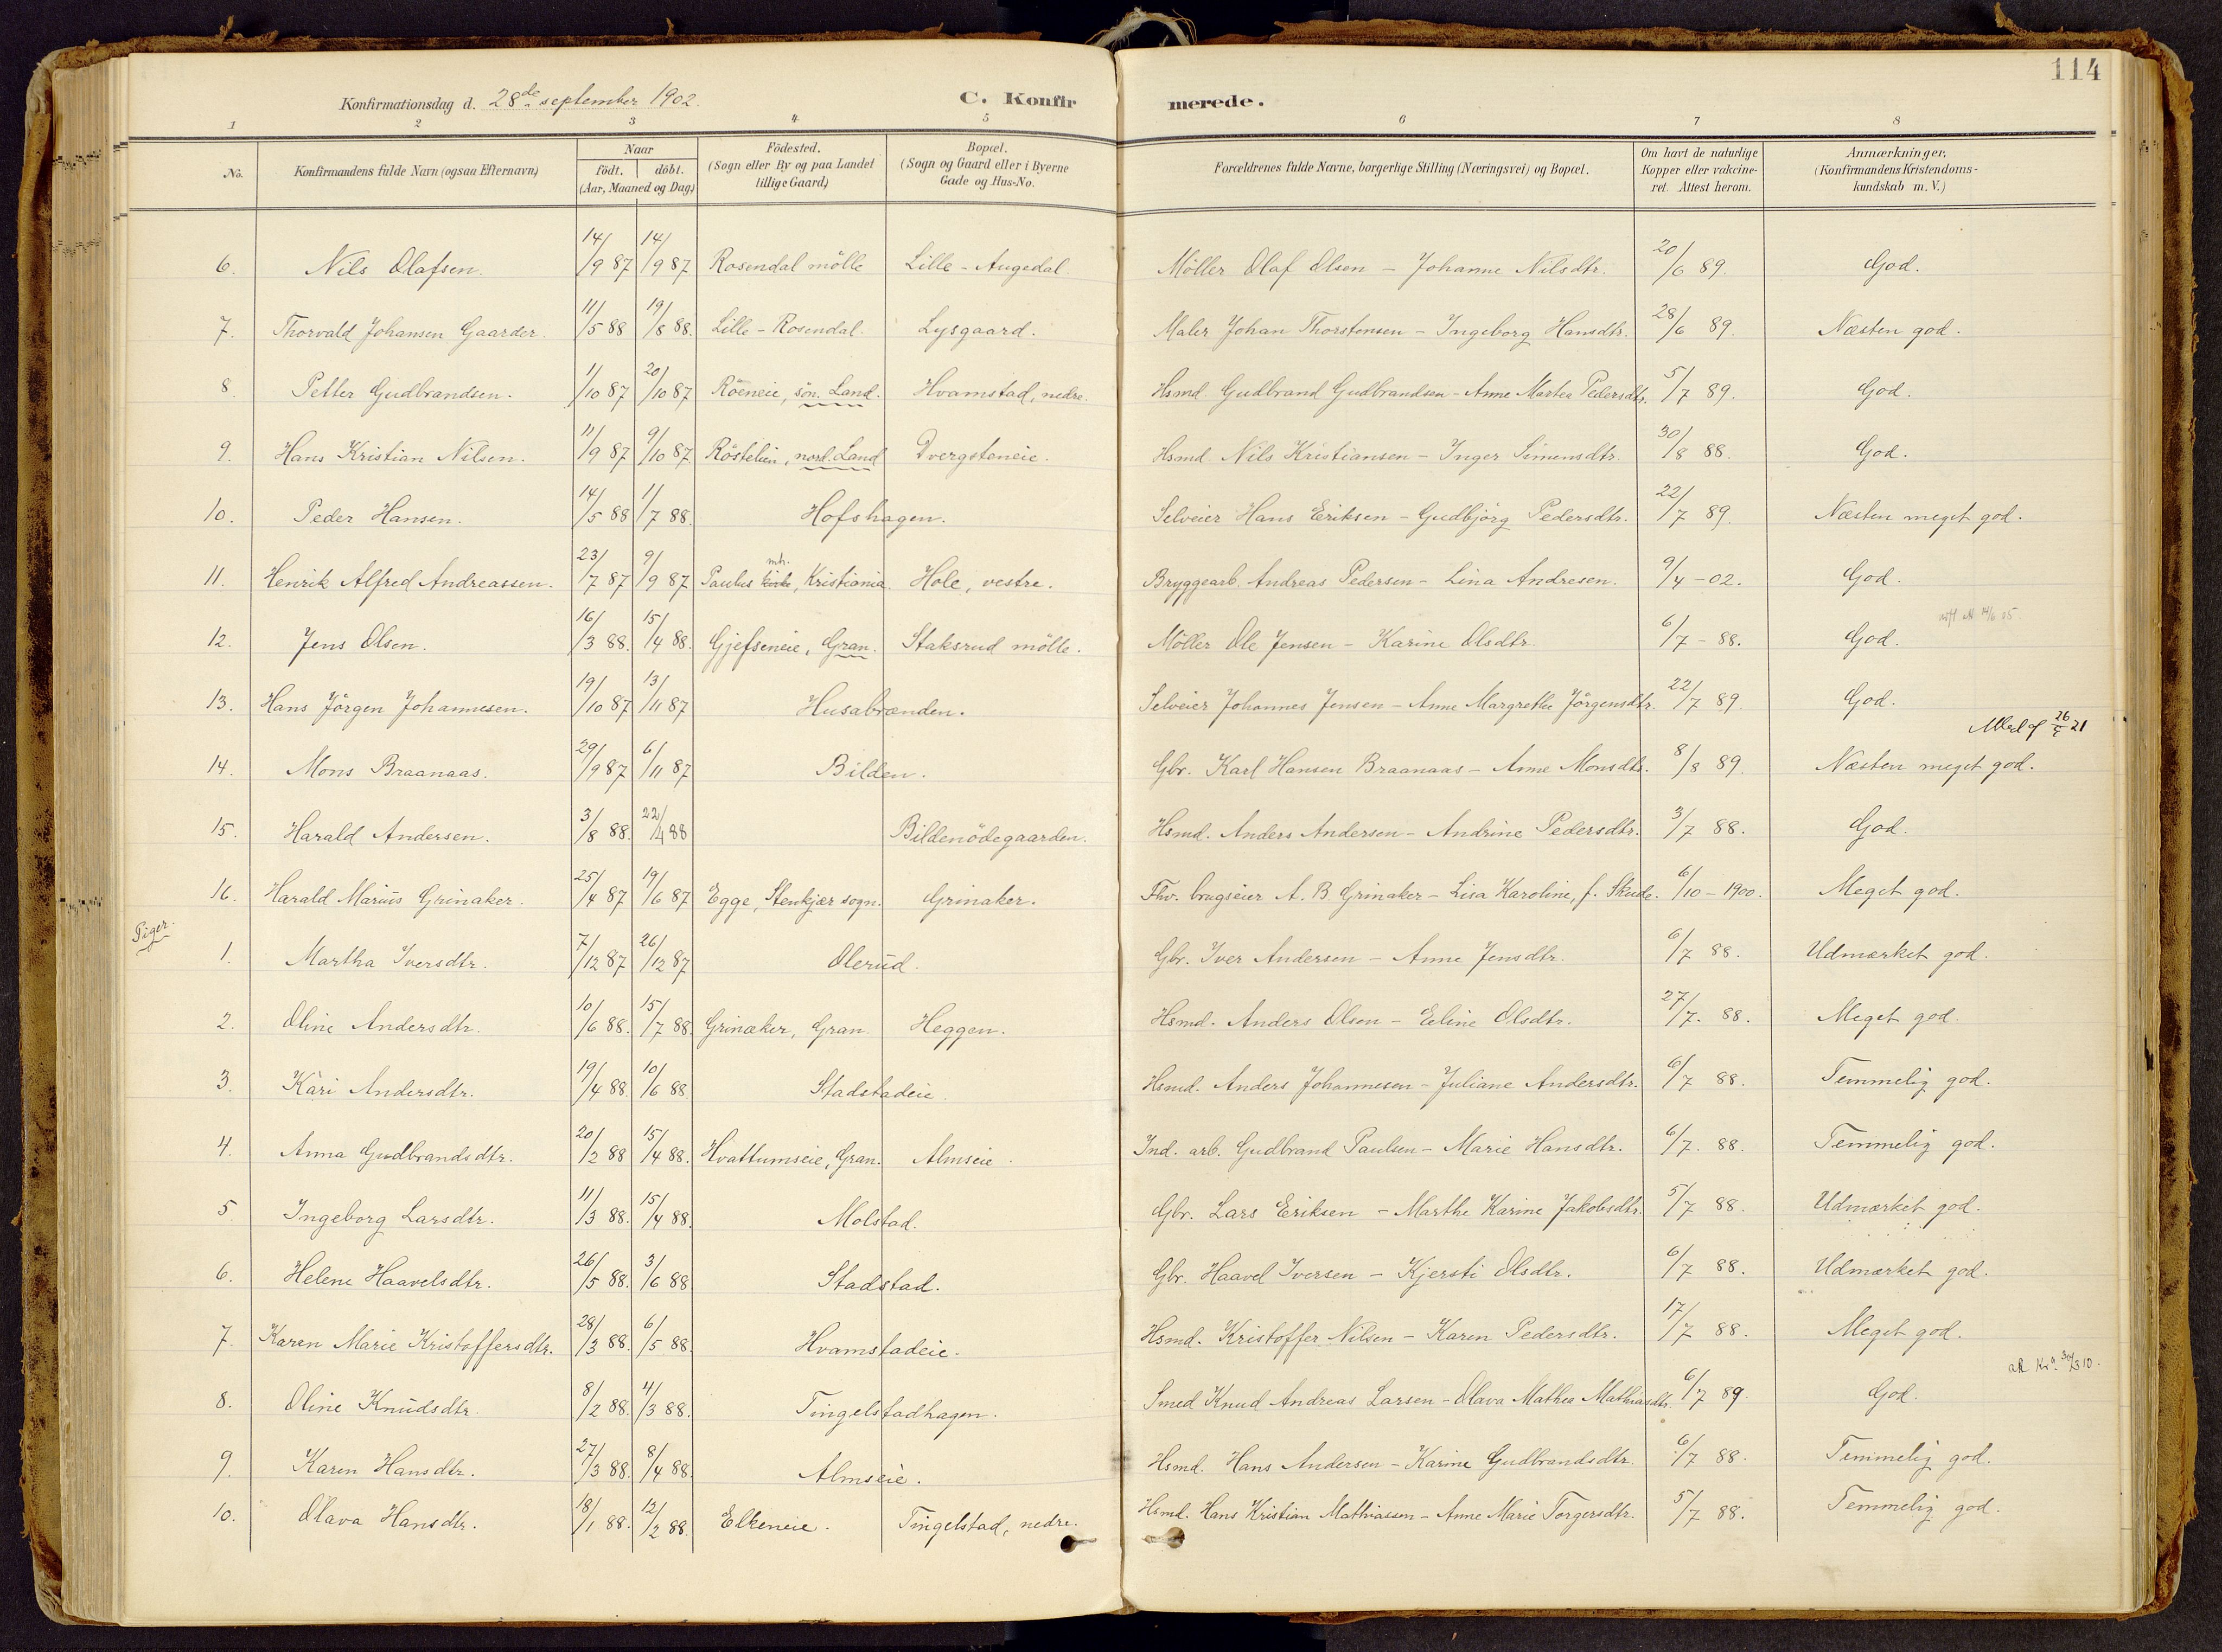 114
Konfirmationsdag d. 28de september 1902. C. Konfirmerede.
1 2 3 4 5 6 7 8
No. Konfirmandens fulde Navn (ogsaa Efternavn) Naar födt. döbt. (Aar, Maaned og Dag) Födested. (Sogn eller By og paa Landet tillige Gaard) Bopæl. (Sogn og Gaard eller i Byerne Gade og Hus-No. Forældrenes fulde Navne, borgerlige Stilling (Næringsvei) og Bopæl. Om havt de naturlige Kopper eller vakcineret. Attest herom. Anmærkninger. (Konfirmandens Kristendomskundskab m. V.)
6. Nils Olafsen. 14/9 87 14/9 87 Rosendal mölle Lille-Augedal. Möller Olaf Olsen - Johanne Nilsdtr. 20/6 89. God.
7. Thorvald Johansen Gaarder. 11/5 88 19/8 88. Lille-Rosendal. Lysgaard. Maler Johan Thorstensen - Ingeborg Hansdtr. 28/6 89. Næsten god.
8. Petter Gudbrandsen. 1/10 87 20/10 87 Röeneie, sön. Land. Hvamstad, nedre. Hsmd. Gudbrand Gudbrandsen - Anne Martea Pedersdtr. 5/7 89. God.
9. Hans Kristian Nilsen. 11/9 87 9/10 87 Röstelien, nord. Land Dvergsteneie. Hsmd. Nils Kristiansen - Inger Simensdtr. 30/8 88. God.
10. Peder Hansen. 14/5 88 1/7 88. Hofshagen. Selveier Hans Eriksen - Gudbjörg Pedersdtr. 22/7 89. Næsten meget god.
11. Henrik Alfred Andreassen. 23/7 87 9/9 87 Paulus mh. Kristiania. Hole, vestre. Bryggearb. Andreas Pedersen - Lina Andresen. 9/4-02. God.
12. Jens Olsen. 16/3 88. 15/4 88. Gjefseneie, Gran. Staksrud mölle. Möller Ole Jensen - Karine Olsdtr. 6/7-88. God.
13. Hans Jörgen Johannesen. 19/10 87 13/11 87 Husabrænden. Selveier Johannes Jensen - Anne Margrethe Jörgensdtr. 22/7 89. God.
14. Mons Braanaas. 29/9 87 6/11 87 Bilden. Gbr. Karl Hansen Braanaas - Anne Monsdtr. 8/8 89. Næsten meget god.
15. Harald Andersen. 3/8 88. 22/4 88 Bildenödegaarden. Hsmd. Anders Andersen - Andrine Pedersdtr. 3/7 88. God.
16. Harald Marius Grinaker. 25/4 87 19/6 87 Egge, Stenkjær sogn. Grinaker. Fhv. brugseier A. B. Grinaker - Lisa Karoline, f. Skude. 6/10-1900. Meget god.
Piger.
1. Martha Iversdtr. 7/12 87 26/12 87 Olerud. Gbr. Iver Andersen - Anne Jensdtr. 6/7 88. Udmærket god.
2. Oline Andersdtr. 10/6 88. 15/7 88. Grinaker, Gran. Heggen. Hsmd. Anders Olsen - Eline Olsdtr. 27/7. 88. Meget god.
3. Kari Andersdtr. 19/4 88. 10/6 88. Stadstadeie. Hsmd. Anders Johannesen - Juliane Andersdtr. 6/7 88. Temmelig god.
4. Anna Gudbrandsdtr. 20/2 88 15/4 88. Hvattumseie, Gran. Almseie. Ind. arb. Gudbrand Paulsen - Marie Hansdtr. 6/7. 88. Temmelig god.
5. Ingeborg Larsdtr. 11/3 88. 15/4 88. Molstad. Gbr. Lars Eriksen - Marthe Karine Jakobsdtr. 5/7 88. Udmærket god.
6. Helene Haavelsdtr. 26/5 88. 3/6 88 Stadstad. Gbr. Haavel Iversen - Kjersti Olsdtr. 6/7 88. Udmærket god.
7. Karen Marie Kristoffersdtr. 28/3 88. 6/5 88. Hvamstadeie. Hsmd. Kristoffer Nilsen - Karen Pedersdtr. 17/7 88. Meget god.
8. Oline Knudsdtr. 8/2 88. 4/3 88. Tingelstadhagen. Smed Knud Andreas Larsen - Olava Mathea Mathiasdtr. 6/7 89. God.
9. Karen Hansdtr. 27/3 88. 8/4 88. Almseie. Hsmd. Hans Andersen - Karine Gudbrandsdtr. 6/7 88. Temmelig god.
10. Olava Hansdtr. 18/1 88. 12/2 88. Elkeneie. Tingelstad, nedre. Hsmd. Hans Kristian Mathiassen - Anne Marie Torgersdtr. 5/7 88. Temmelig god.